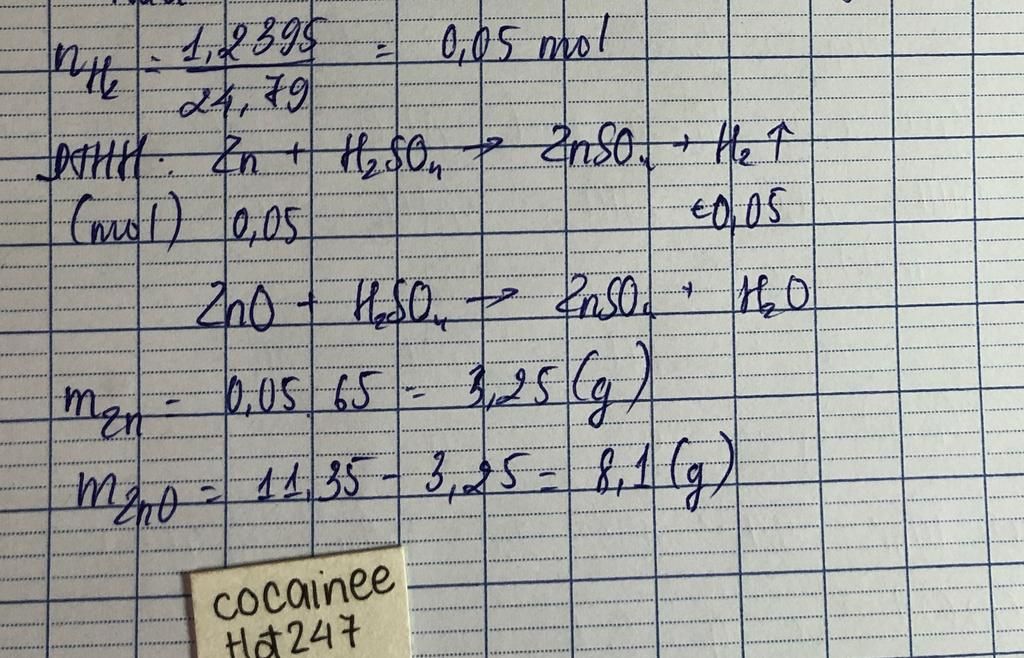 nH₂ = 1,2395 / 24,79 = 0,05 mol
PTHH: Zn + H₂SO₄ → ZnSO₄ + H₂↑
(mol) 0,05 ←0,05
ZnO + H₂SO₄ → ZnSO₄ + H₂O
mZn = 0,05 . 65 = 3,25 (g)
mZnO = 11,35 - 3,25 = 8,1 (g)
cocainee
Hot247